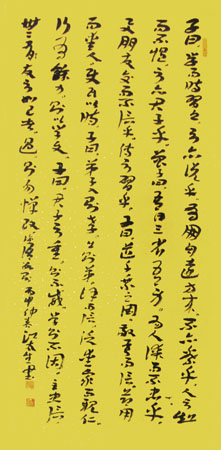 子曰學而時習之不亦說乎有朋自遠方來不亦樂乎人不知
而不愠不亦君子乎曾子曰吾日三省吾身為人謀而不忠乎
與朋友交而不信乎傳不習乎子曰道千乘之國敬事而信節用
而愛人使民以時子曰弟子入則孝出則弟謹而信汎愛眾而親仁
行有餘力則以學文子曰君子不重則不威學則不固主忠信
無友不如己者過則勿憚改 丙申仲春